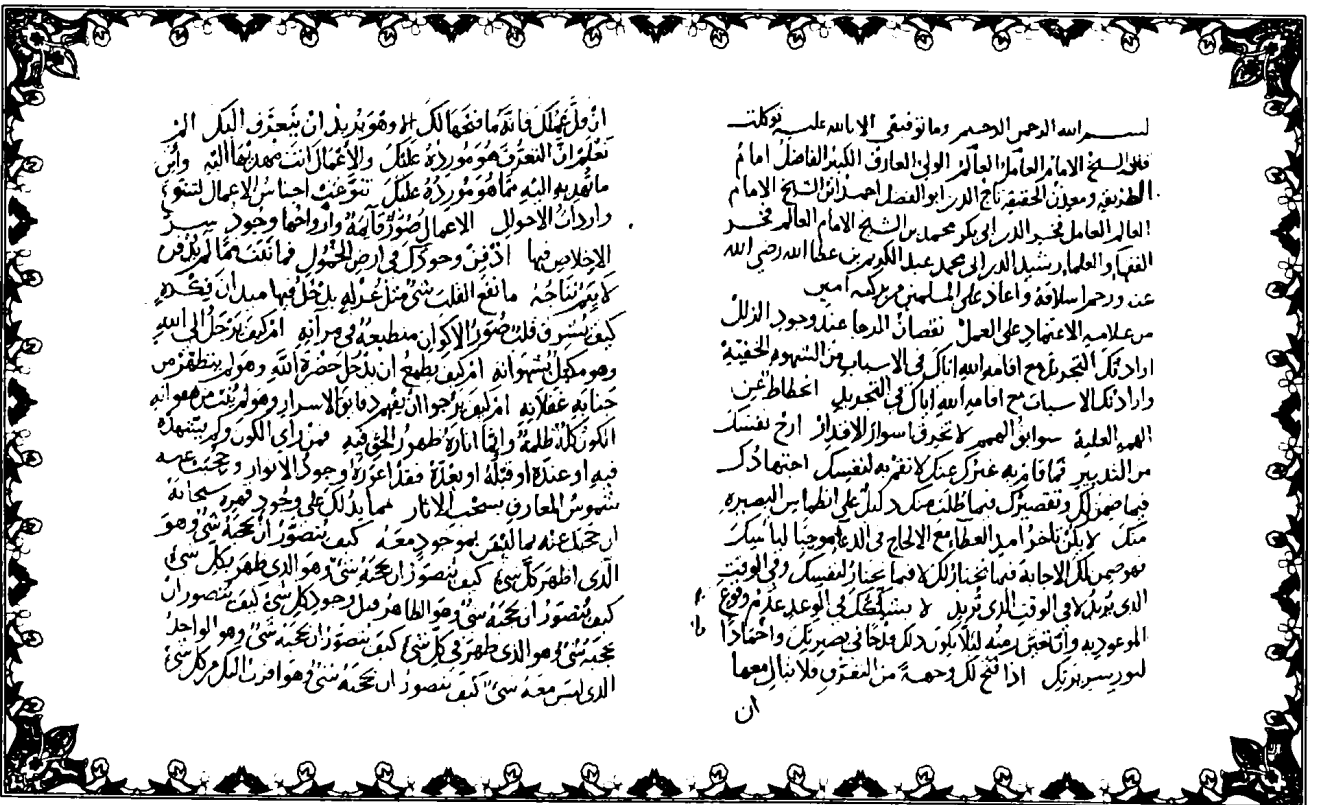 بسم الله الرحمن الرحيم وما توفيقي الا بالله عليه توكلت
قال الشيخ الامام العامل العالم الولي العارف الكبير الفاضل امام
الطريقه ومعدن الحقيقه تاج الدين ابو الفضل احمد ابن الشيخ الامام
العالم العامل فخر الدين ابي بكر محمد بن الشيخ الامام العالم فخر
الفقهاء والعلماء رشيد الدين ابي محمد عبد الكريم بن عطا الله رضي الله
عنه ورحم اسلافه واعاد على المسلمين من بركته امين
من علامه الاعتماد على العمل نقصان الرجا عند وجود الزلل
ارادتك التجريد مع اقامه الله اياك في الاسباب من الشهوه الخفيّة
وارادتك الاسباب مع اقامه الله اياك في التجريد انحطاط عن
الهمه العلية سوابق الهمم لا تخرق اسوار الاقدار ارح نفسك
من التدبير فما قام به غيرك عنك لا تقم به لنفسك اجتهادك
فيما ضمن لك وتقصيرك فيما طلب منك دليل على انطماس البصيره
منك لا يكن تاخر امد العطاء مع الالحاح في الدعا موجبا لياسك
فهو ضمن لك الاجابة فيما يختار لك لا فيما تختار لنفسك وفي الوقت
الذي يريد لا في الوقت الذي تريد لا يشككنك في الوعد عدم وقوع
الموعود به وان تعين زمنه ليلا يكون ذلك قدحا في بصيرتك واخمادا
لنور سريرتك اذا فتح لك وجهة من التعرف فلا تبال معها
ان
ان قل عملك فانه ما فتحها لك الا وهو يريد ان يتعرف اليك الم
تعلم ان التعرف هو مورده عليك والاعمال انت مهديها اليه واين
ما تهديه اليه مما هو مورده عليك تنوعت اجناس الاعمال لتنوع
واردات الاحوال الاعمال صور قائمة وارواحها وجود سر
الاخلاص فيها ادفن وجودك في ارض الخمول فما نبت مما لم يدفن
لا يتم نتاجه ما نفع القلب شئ مثل عزلة يدخل فيها ميدان فكرة
كيف يشرق قلب صور الاكوان منطبعة في مرآته ام كيف يرحل الى الله
وهو مكبل بشهواته ام كيف يطمع ان يدخل حضرة الله وهو لم يتطهر من
جنابة غفلاته ام كيف يرجوا ان يفهم دقايق الاسرار وهو لم يتب من هفواته
الكون كله ظلمة وانما اناره ظهور الحق فيه فمن راى الكون ولم يشهده
فيه او عنده او قبله او بعده فقد اعوزه وجود الانوار وحجبت عنه
شموس المعارف بسحب الاثار مما يدلك على وجود قهره سبحانه
ان حجبك عنه بما ليس بموجود معه كيف يتصور ان يحجبه شئ وهو
الذي اظهر كل شئ كيف يتصور ان يحجبه شئ وهو الذي ظهر بكل شئ
كيف يتصور ان يحجبه شئ وهو الظاهر قبل وجود كل شئ كيف يتصور ان
يحجبه شئ وهو الذي ظهر في كل شئ كيف يتصور ان يحجبه شئ وهو الواحد
الذي ليس معه شئ كيف يتصور ان يحجبه شئ وهو اقرب اليك من كل شئ